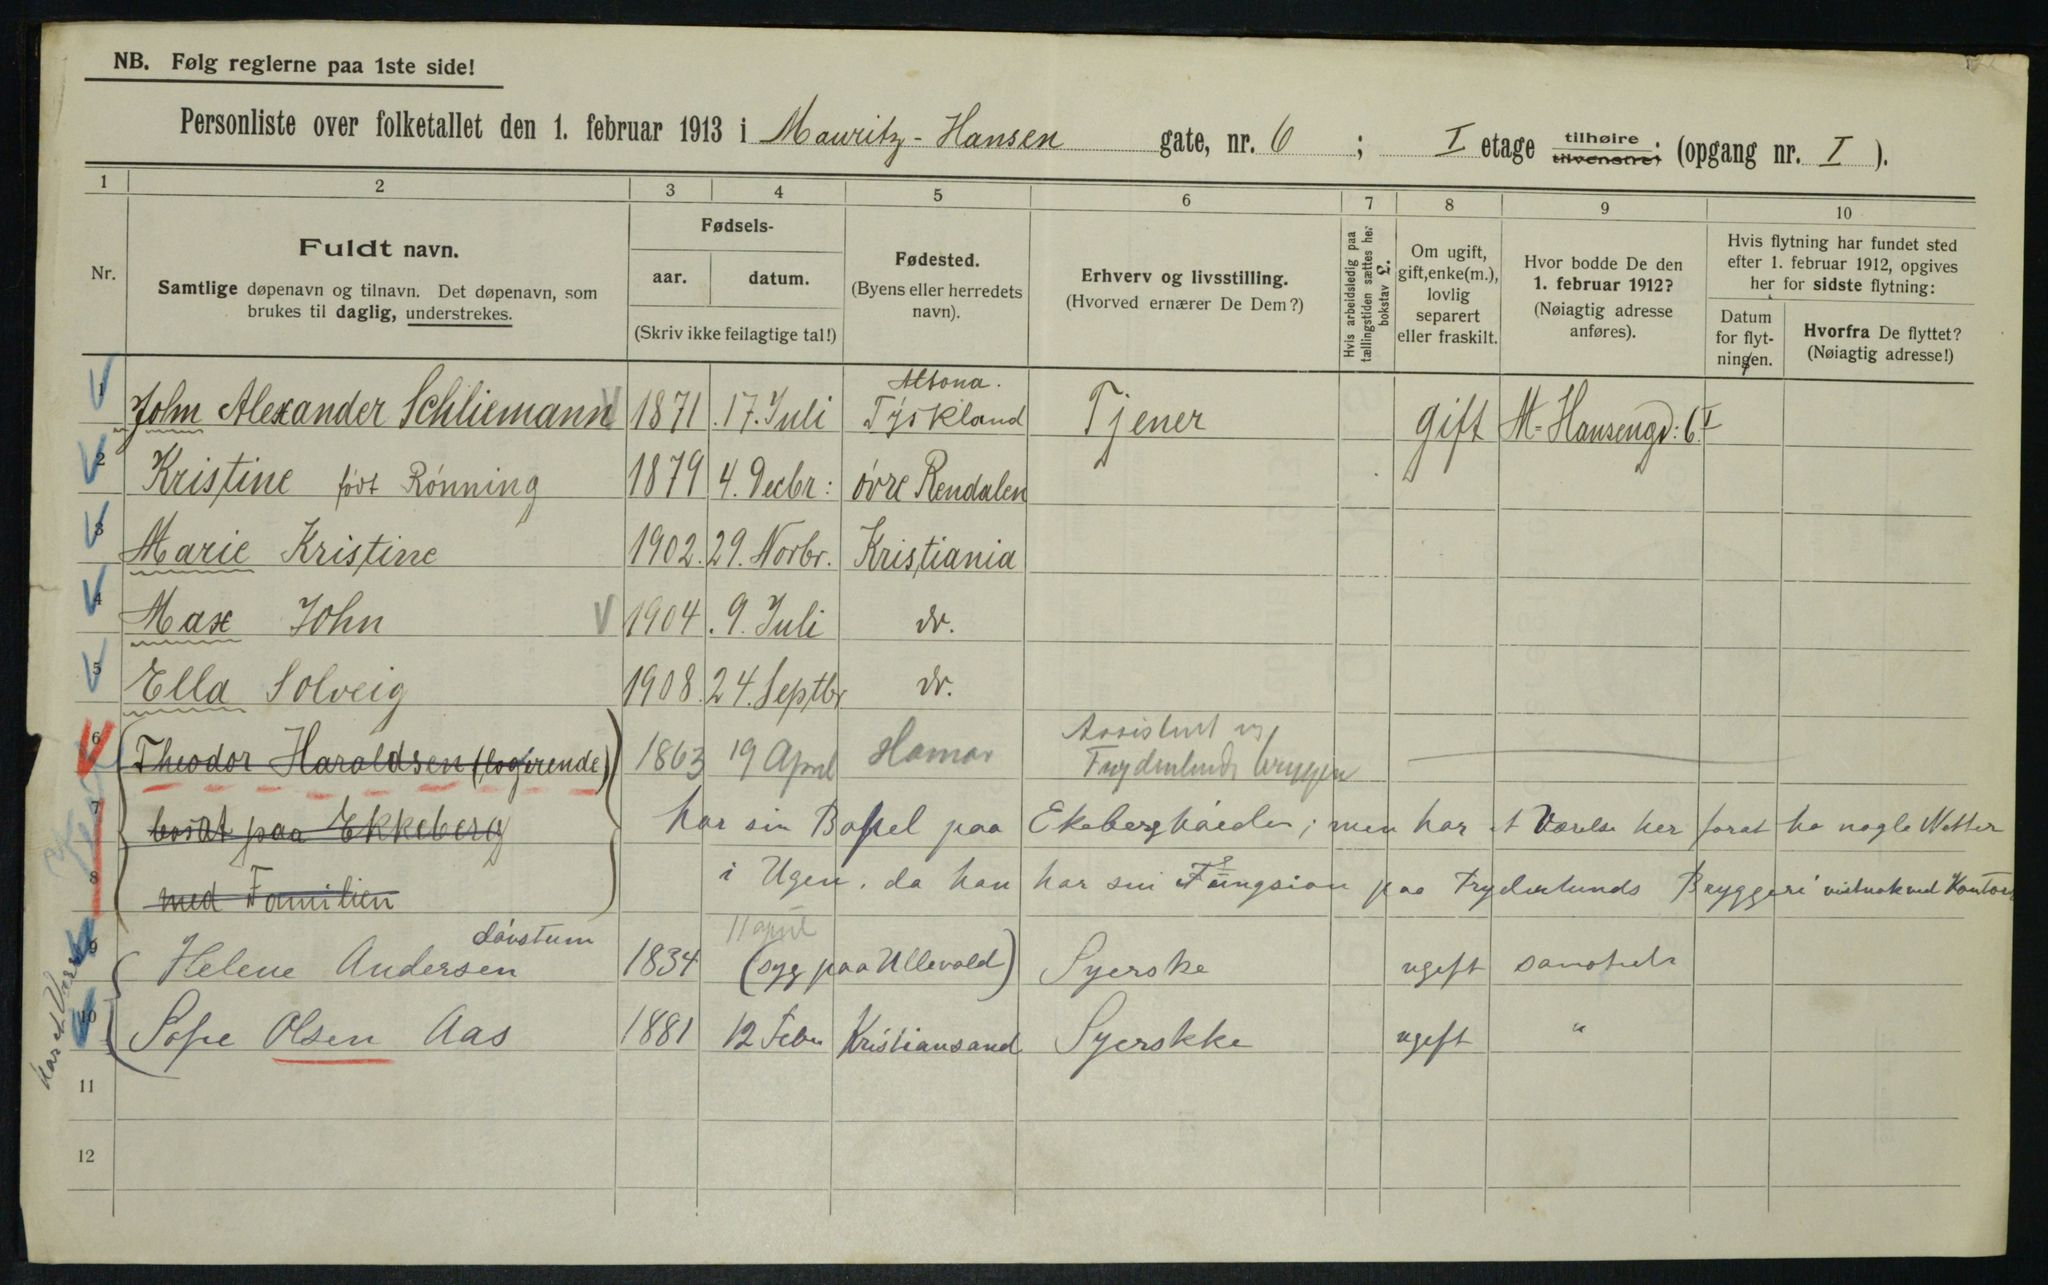 NB. Følg reglerne paa 1ste side!
Personliste over folketallet den 1. februar 1913 i Mauritz-Hansen gate, nr. 6 ; I etage tilhøire tilvenstre; (opgang nr. I ).
1 2 3 4 5 6 7 8 9 10
Nr.
Fuldt navn.
Samtlige døpenavn og tilnavn. Det døpenavn, som
brukes til daglig, understrekes.
Fødsels-
aar. datum.
(Skriv ikke feilagtige tal!)
Fødested.
(Byens eller herredets
navn).
Erhverv og livsstilling.
(Hvorved ernærer De Dem?)
Hvis arbeidsledig paa
tællingstiden sættes her
bokstav £.
Om ugift,
gift, enke(m.),
lovlig
separert
eller fraskilt.
Hvor bodde De den
1. februar 1912?
(Nøiagtig adresse
anføres).
Hvis flytning har fundet sted
efter 1. februar 1912, opgives
her for sidste flytning:
Datum
for flyt-
ningen.
Hvorfra De flyttet?
(Nøiagtig adresse!)
1 John Alexander Schliemann 1871 17. Juli Altona. Tyskland Tjener gift M-Hansengd: 6 I
2 Kristine født Rønning 1879 4. Decbr: øvre Rendalen
3 Marie Kristine 1902. 29. Novbr. Kristiania
4 Max John 1904. 9. Juli do.
5 Ella Solveig 1908. 24. Septbr do.
6 Theodor Haraldsen (logerende) 1863 19 April Hamar Assistent Frydenlunds bryggeri
7 bosat paa Ekkeberg har sin Bopel paa Ekeberghøiden; men har et Værelse her forat ha nogle Netter
8 med Familien i Ugen, da han har sin Fungsion paa Frydenlunds Bryggeri vistnok ved Kontoret
9 Helene Andersen døvstum 1834 11 april (syg paa Ullevold) Syerske ugift
10 Sofie Olsen Aas 1881 12 Febr Kristiansand Syerskke ugift "
11
12
har et Værelse